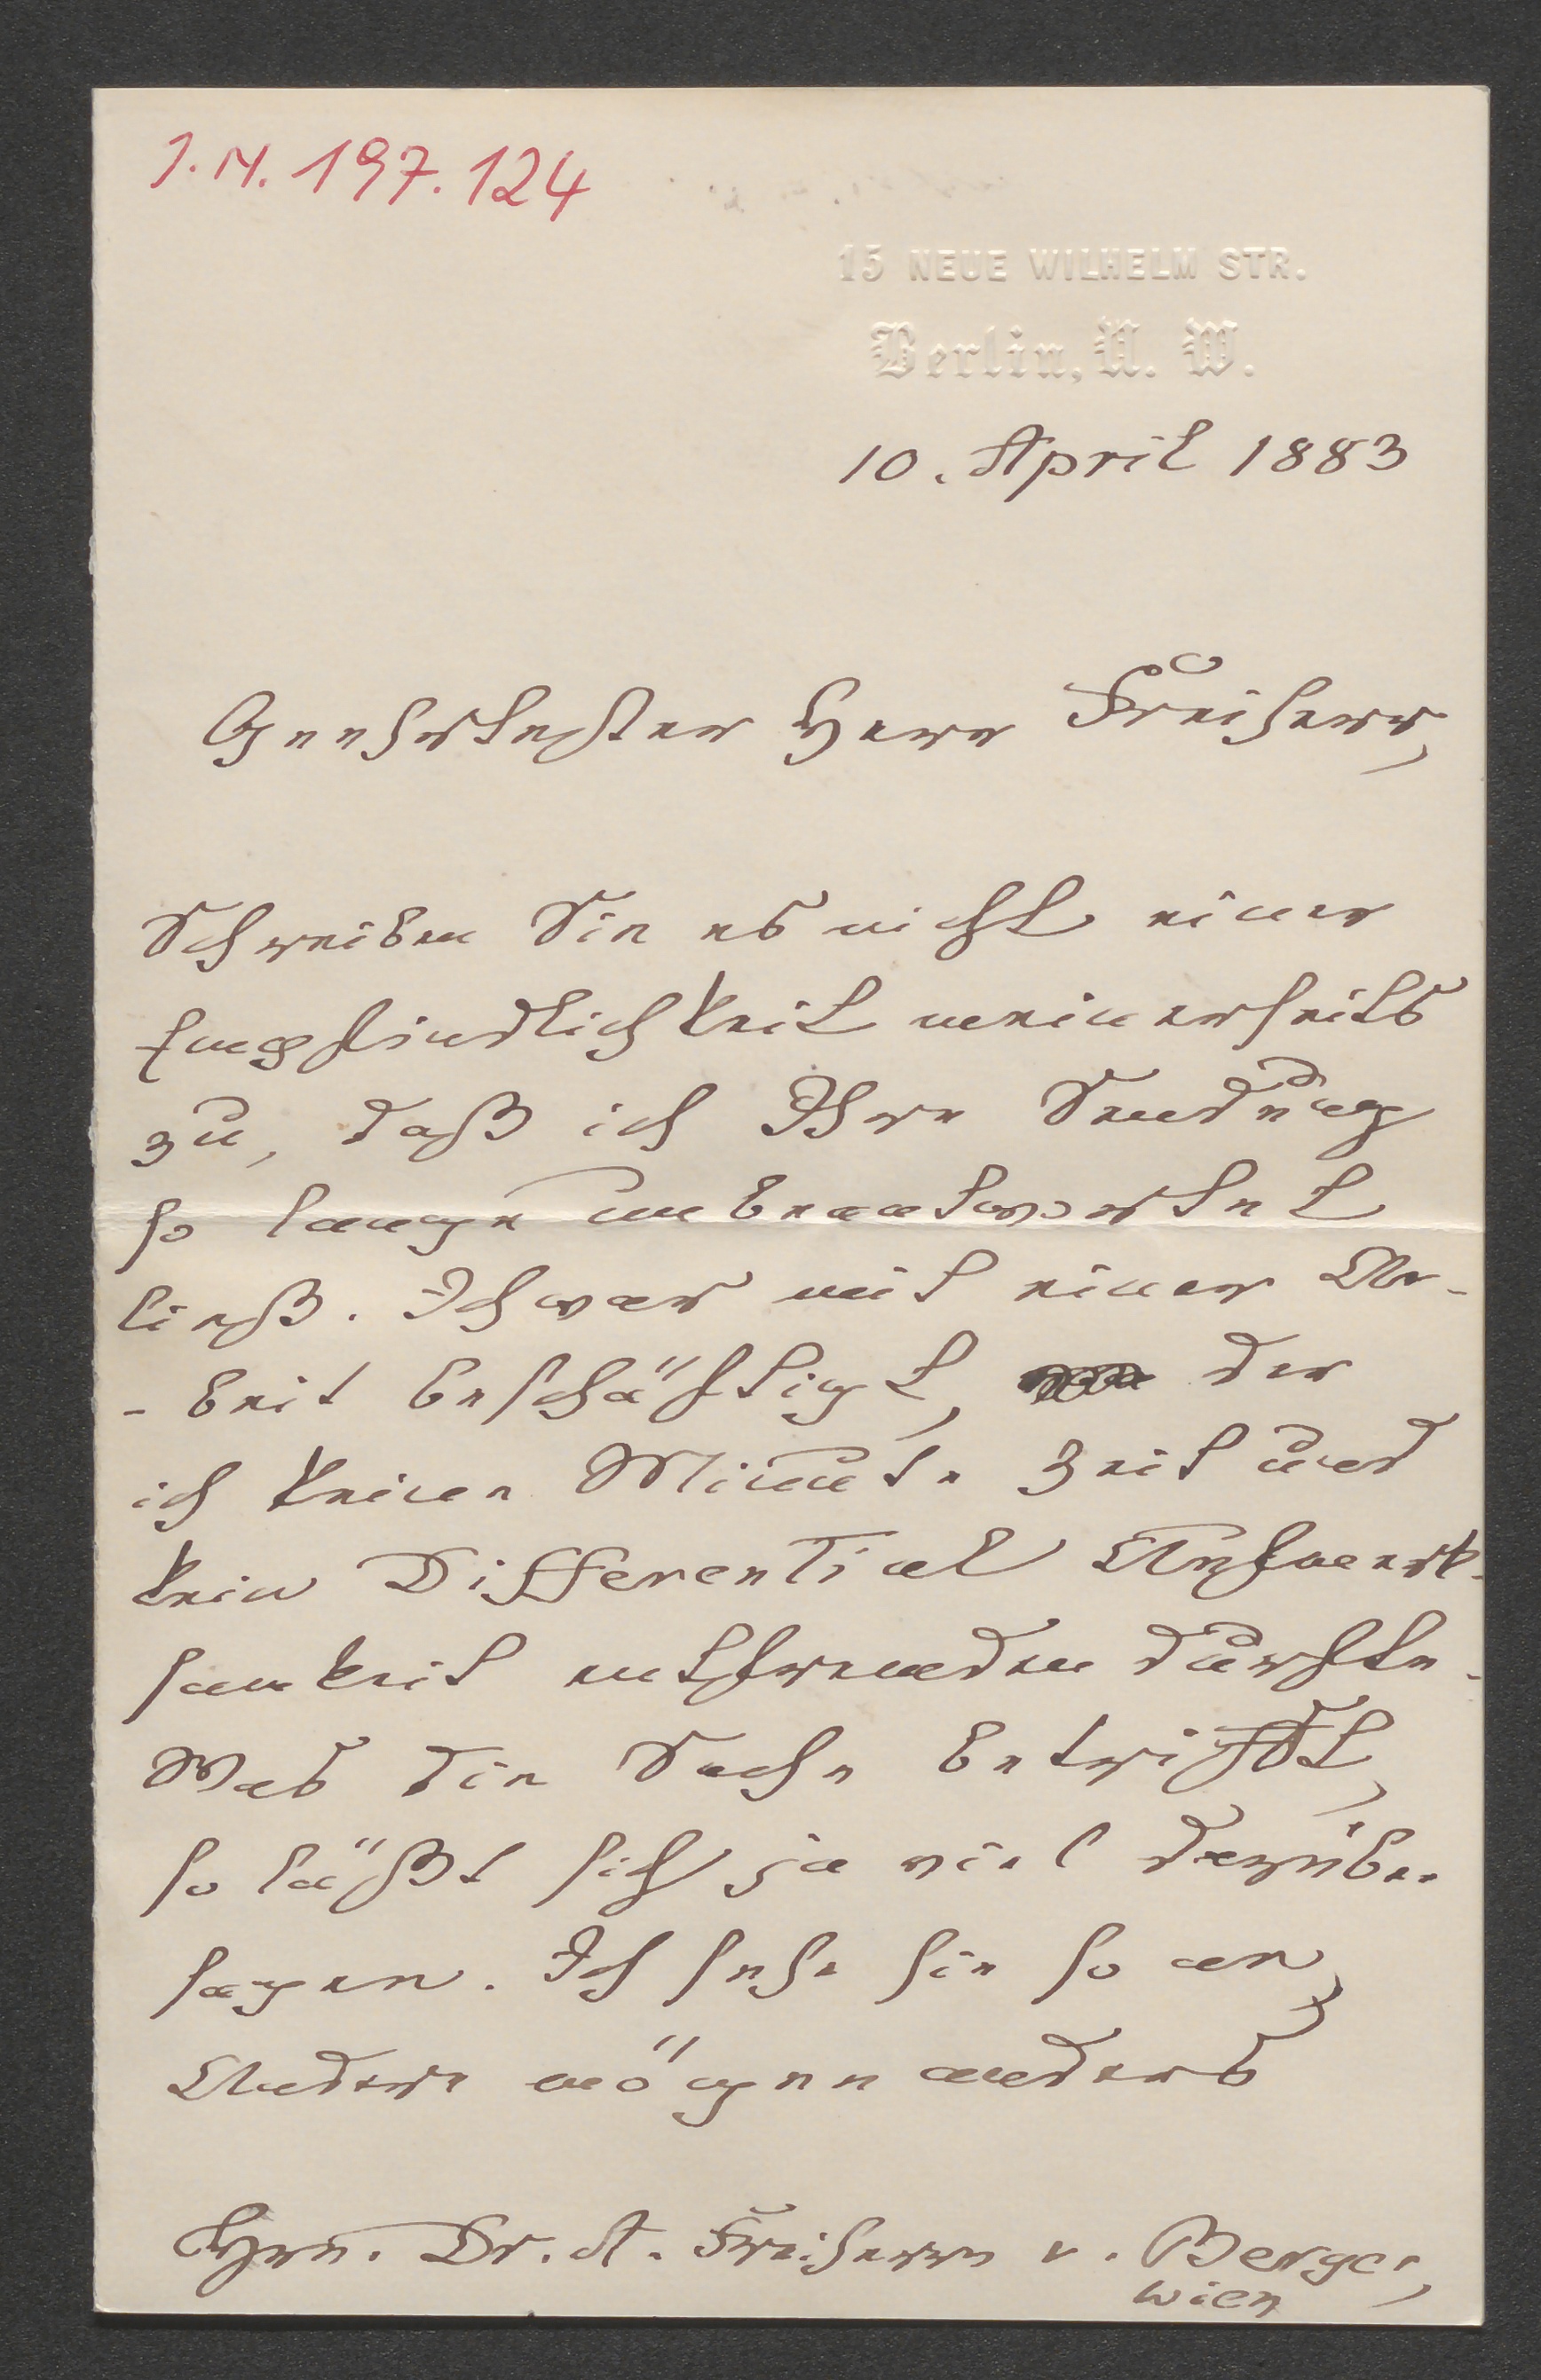 I.N. 197.124
15 NEUE WILHELM STR.
Berlin, N. W.
10. April 1883
Geehrtester Herr Freiherr,
Schreiben Sie es nicht einer
Empfindlichkeit meinerseits
zu, daß ich Ihre Sendung
so lange unbeantwortet
ließ. Ich war mit einer Ar-
-beit beschäftigt, der
ich keine Minute Zeit und
kein Differential Aufmerk-
samkeit entfremden durfte.
Was die Sache betrifft,
so läßt sich ja viel darüber
sagen. Ich sehe sie so an,
Andere mögen anders
Hrn. Dr. A. Freiherrn v. Berger,
Wien